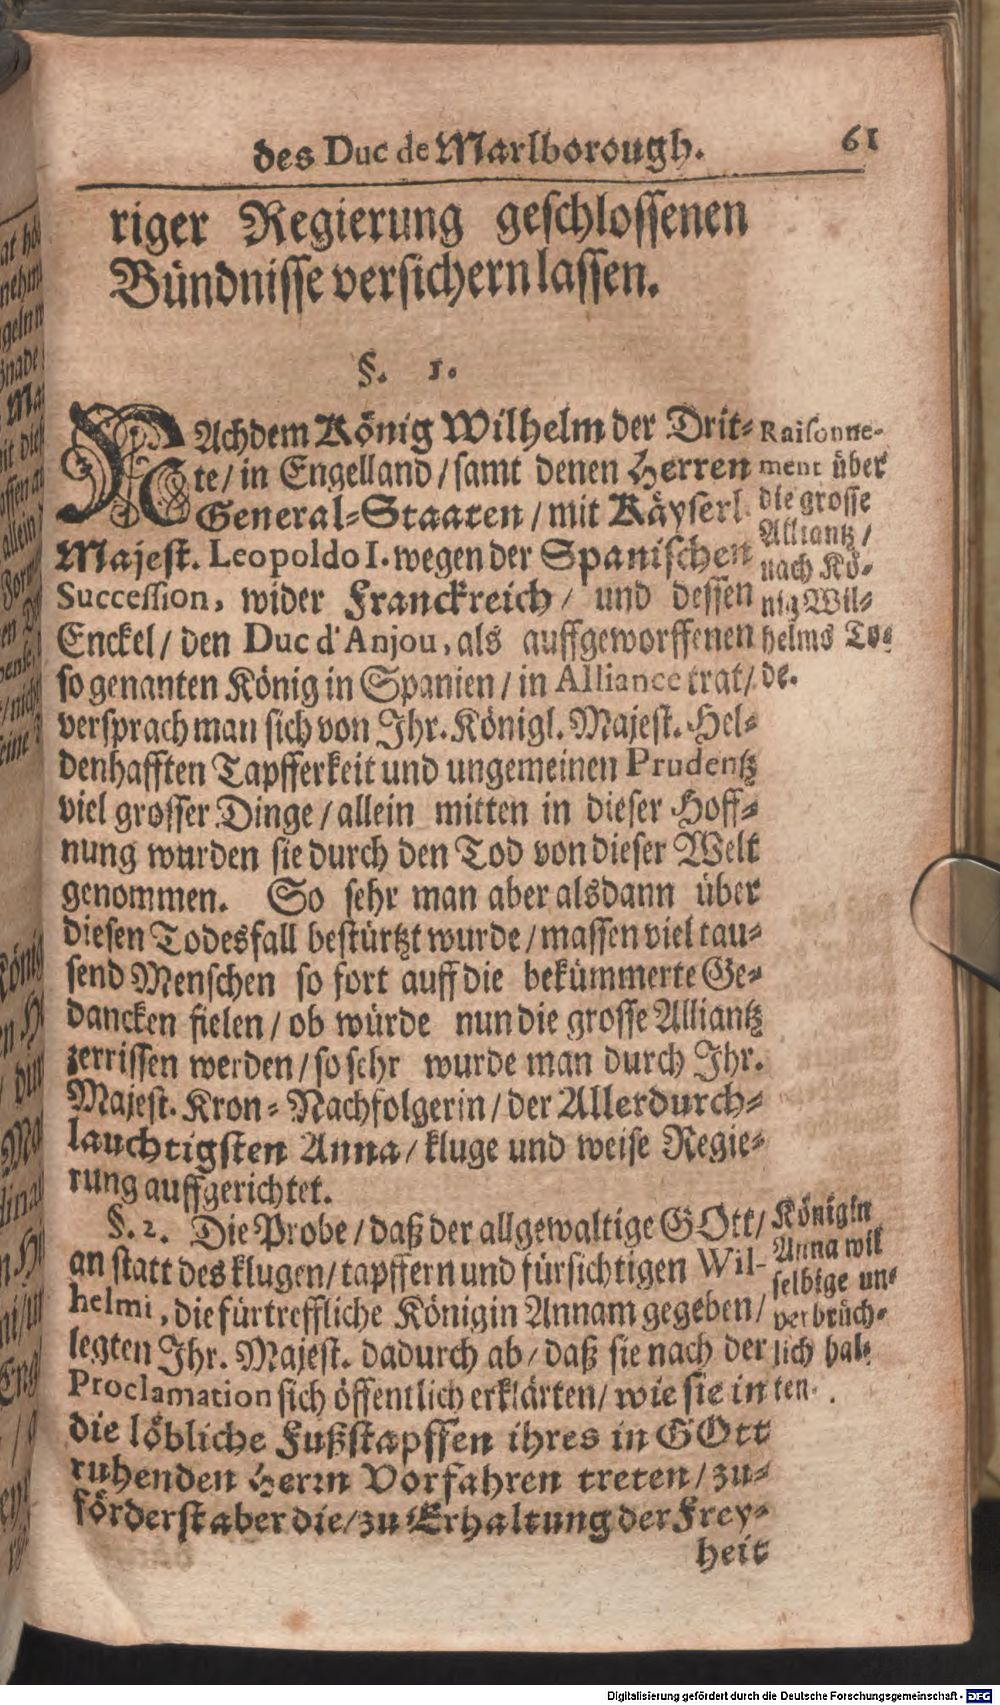 des Duc de Marlborough. 61
riger Regierung geschlossenen
Bündnisse versichern lassen.
§. 1.
NAchdem König Wilhelm der Drit⸗
te / in Engelland / samt denen Herren
General⸗Staaten / mit Käyserl.
Majest. Leopoldo I. wegen der Spanischen
Succession, wider Franckreich / und dessen
Enckel / den Duc d'Anjou, als auffgeworffenen
so genanten König in Spanien / in Alliance trat /
versprach man sich von Ihr. Königl. Majest. Hel⸗
denhafften Tapfferkeit und ungemeinen Prudentz
viel grosser Dinge / allein mitten in dieser Hoff⸗
nung wurden sie durch den Tod von dieser Welt
genommen. So sehr man aber alsdann über
diesen Todesfall bestürtzt wurde / massen viel tau⸗
send Menschen so fort auff die bekümmerte Ge⸗
dancken fielen / ob würde nun die grosse Alliantz
zerrissen werden / so sehr wurde man durch Ihr.
Majest. Kron⸗Nachfolgerin / der Allerdurch⸗
lauchtigsten Anna / kluge und weise Regie⸗
rung auffgerichtet.
Raisonne-
ment über
die grosse
Alliantz /
nach Kö⸗
nig Wil⸗
helms To⸗
de.
§. 2. Die Probe / daß der allgewaltige GOtt /
an statt des klugen / tapffern und fürsichtigen Wil-
helmi, die fürtreffliche Königin Annam gegeben /
legten Ihr. Majest. dadurch ab / daß sie nach der
Proclamation sich öffentlich erklärten / wie sie in
die löbliche Fußstapffen ihres in GOtt
ruhenden Herrn Vorfahren treten / zu⸗
förderst aber die / zu Erhaltung der Frey⸗
heit
Königin
Anna wil
selbige un⸗
verbrüch⸗
lich hal⸗
ten.
Digitalisierung gefördert durch die Deutsche Forschungsgemeinschaft - DFG